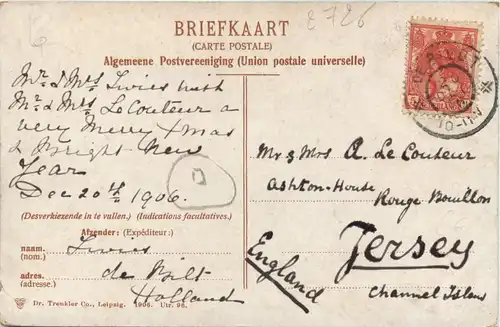 2726
BRIEFKAART
(CARTE POSTALE)
Algemeene Postvereeniging (Union postale universelle)
Mr & Mrs Zwies wish
Mr & Mrs Le Couteur a
very Merry Xmas
& Bright New
Year
Dec 20th 1906.
(Desverkiezende in te vullen.) (Indications facultatives.)
Afzender: (Expéditeur:)
naam. Zwies
(nom.)
adres. de Bilt
(adresse.) Holland
Dr. Trenkler Co., Leipzig. 1906. Utr. 96.
10-11V
Mr & Mrs A. Le Couteur
Ashton-House
Rouge Bouillon
Jersey
England
Channel Islans